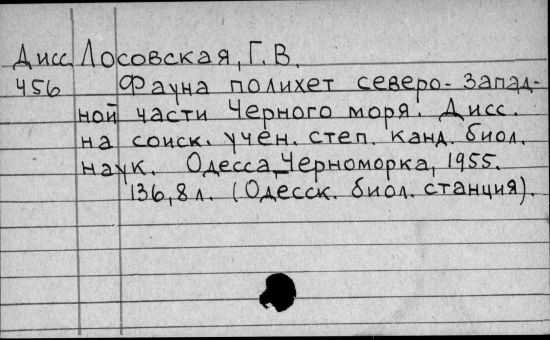 Дисс Лосовская, Г. В.
456 Фауна полихет северо-запад-
ной части Черного моря. Дисс.
на соиск. учен. степ. канд. биол.
наук. Одесса_Черноморка, 1955.
136, 8 л. (Одесск. биол. станция).